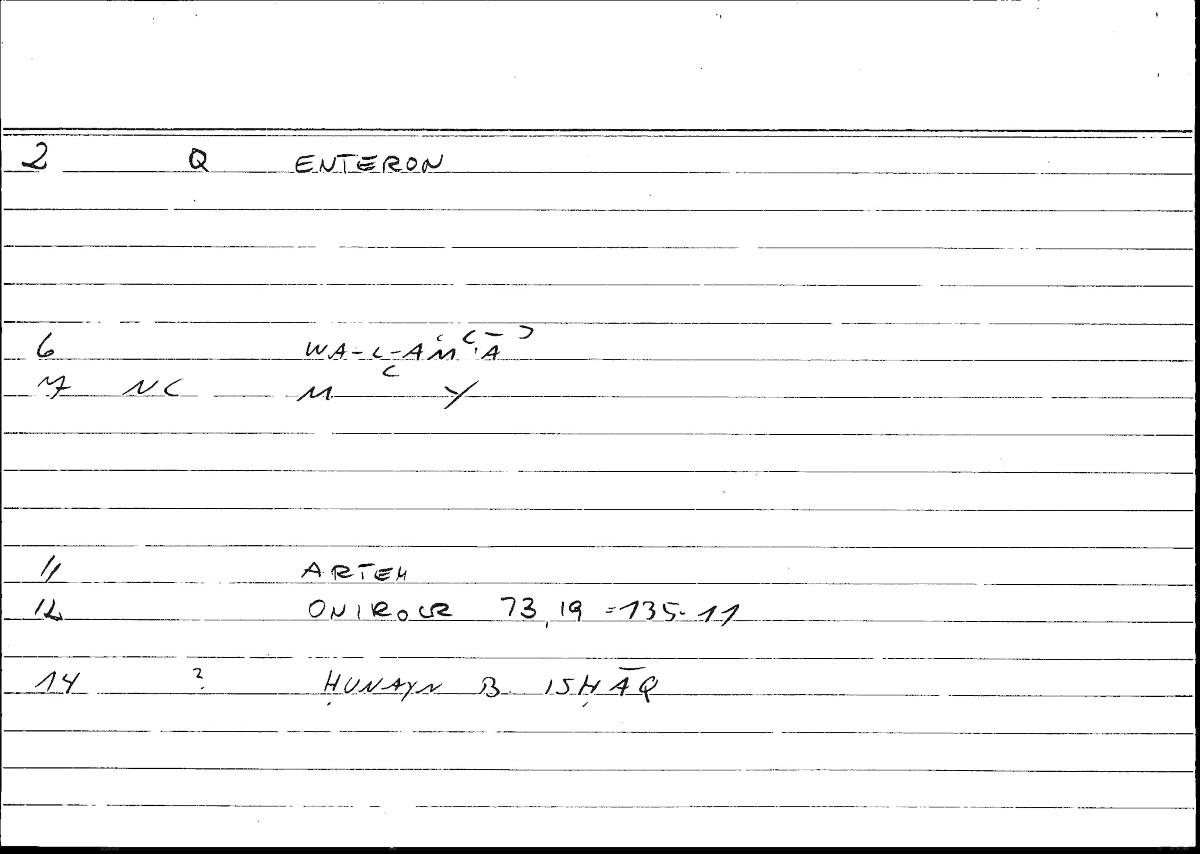 2 Q ENTERON
6 WA-L-AMʿĀʾ
7 NC M Y
11 ARTEM
12 ONIROCR 73,19 =135.11
14 ? ḤUNAYN B. ISḤĀQ